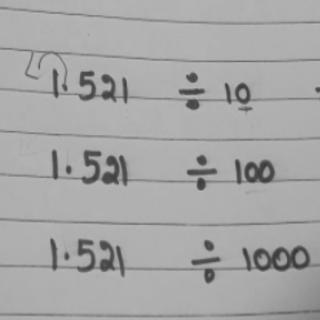 1.521 ÷ 10
1.521 ÷ 100
1.521 ÷ 1000